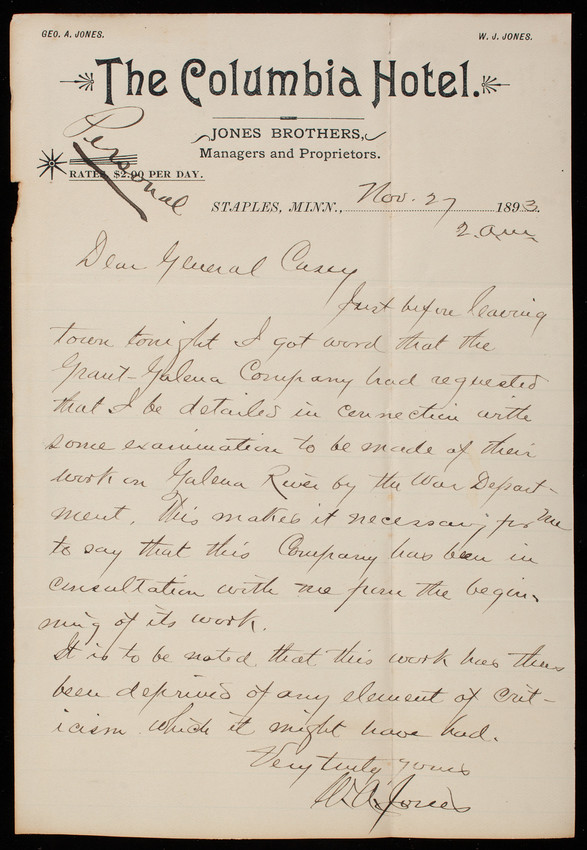 GEO. A. JONES.
W. J. JONES.
The Columbia Hotel.
JONES BROTHERS,
Managers and Proprietors.
Personal
RATES $2.00 PER DAY.
STAPLES, MINN., Nov. 27 1893.
2 am
Dear General Casey
Just before leaving
town tonight I got word that the
Grant-Galena Company had requested
that I be detailed in connection with
some examination to be made of their
work on Galena River by the War Depart-
ment. This makes it necessary for me
to say that this Company has been in
consultation with me from the begin-
ning of its work.
It is to be noted that this work has thus
been deprived of any element of crit-
icism which it might have had.
Very truly yours
W. A. Jones